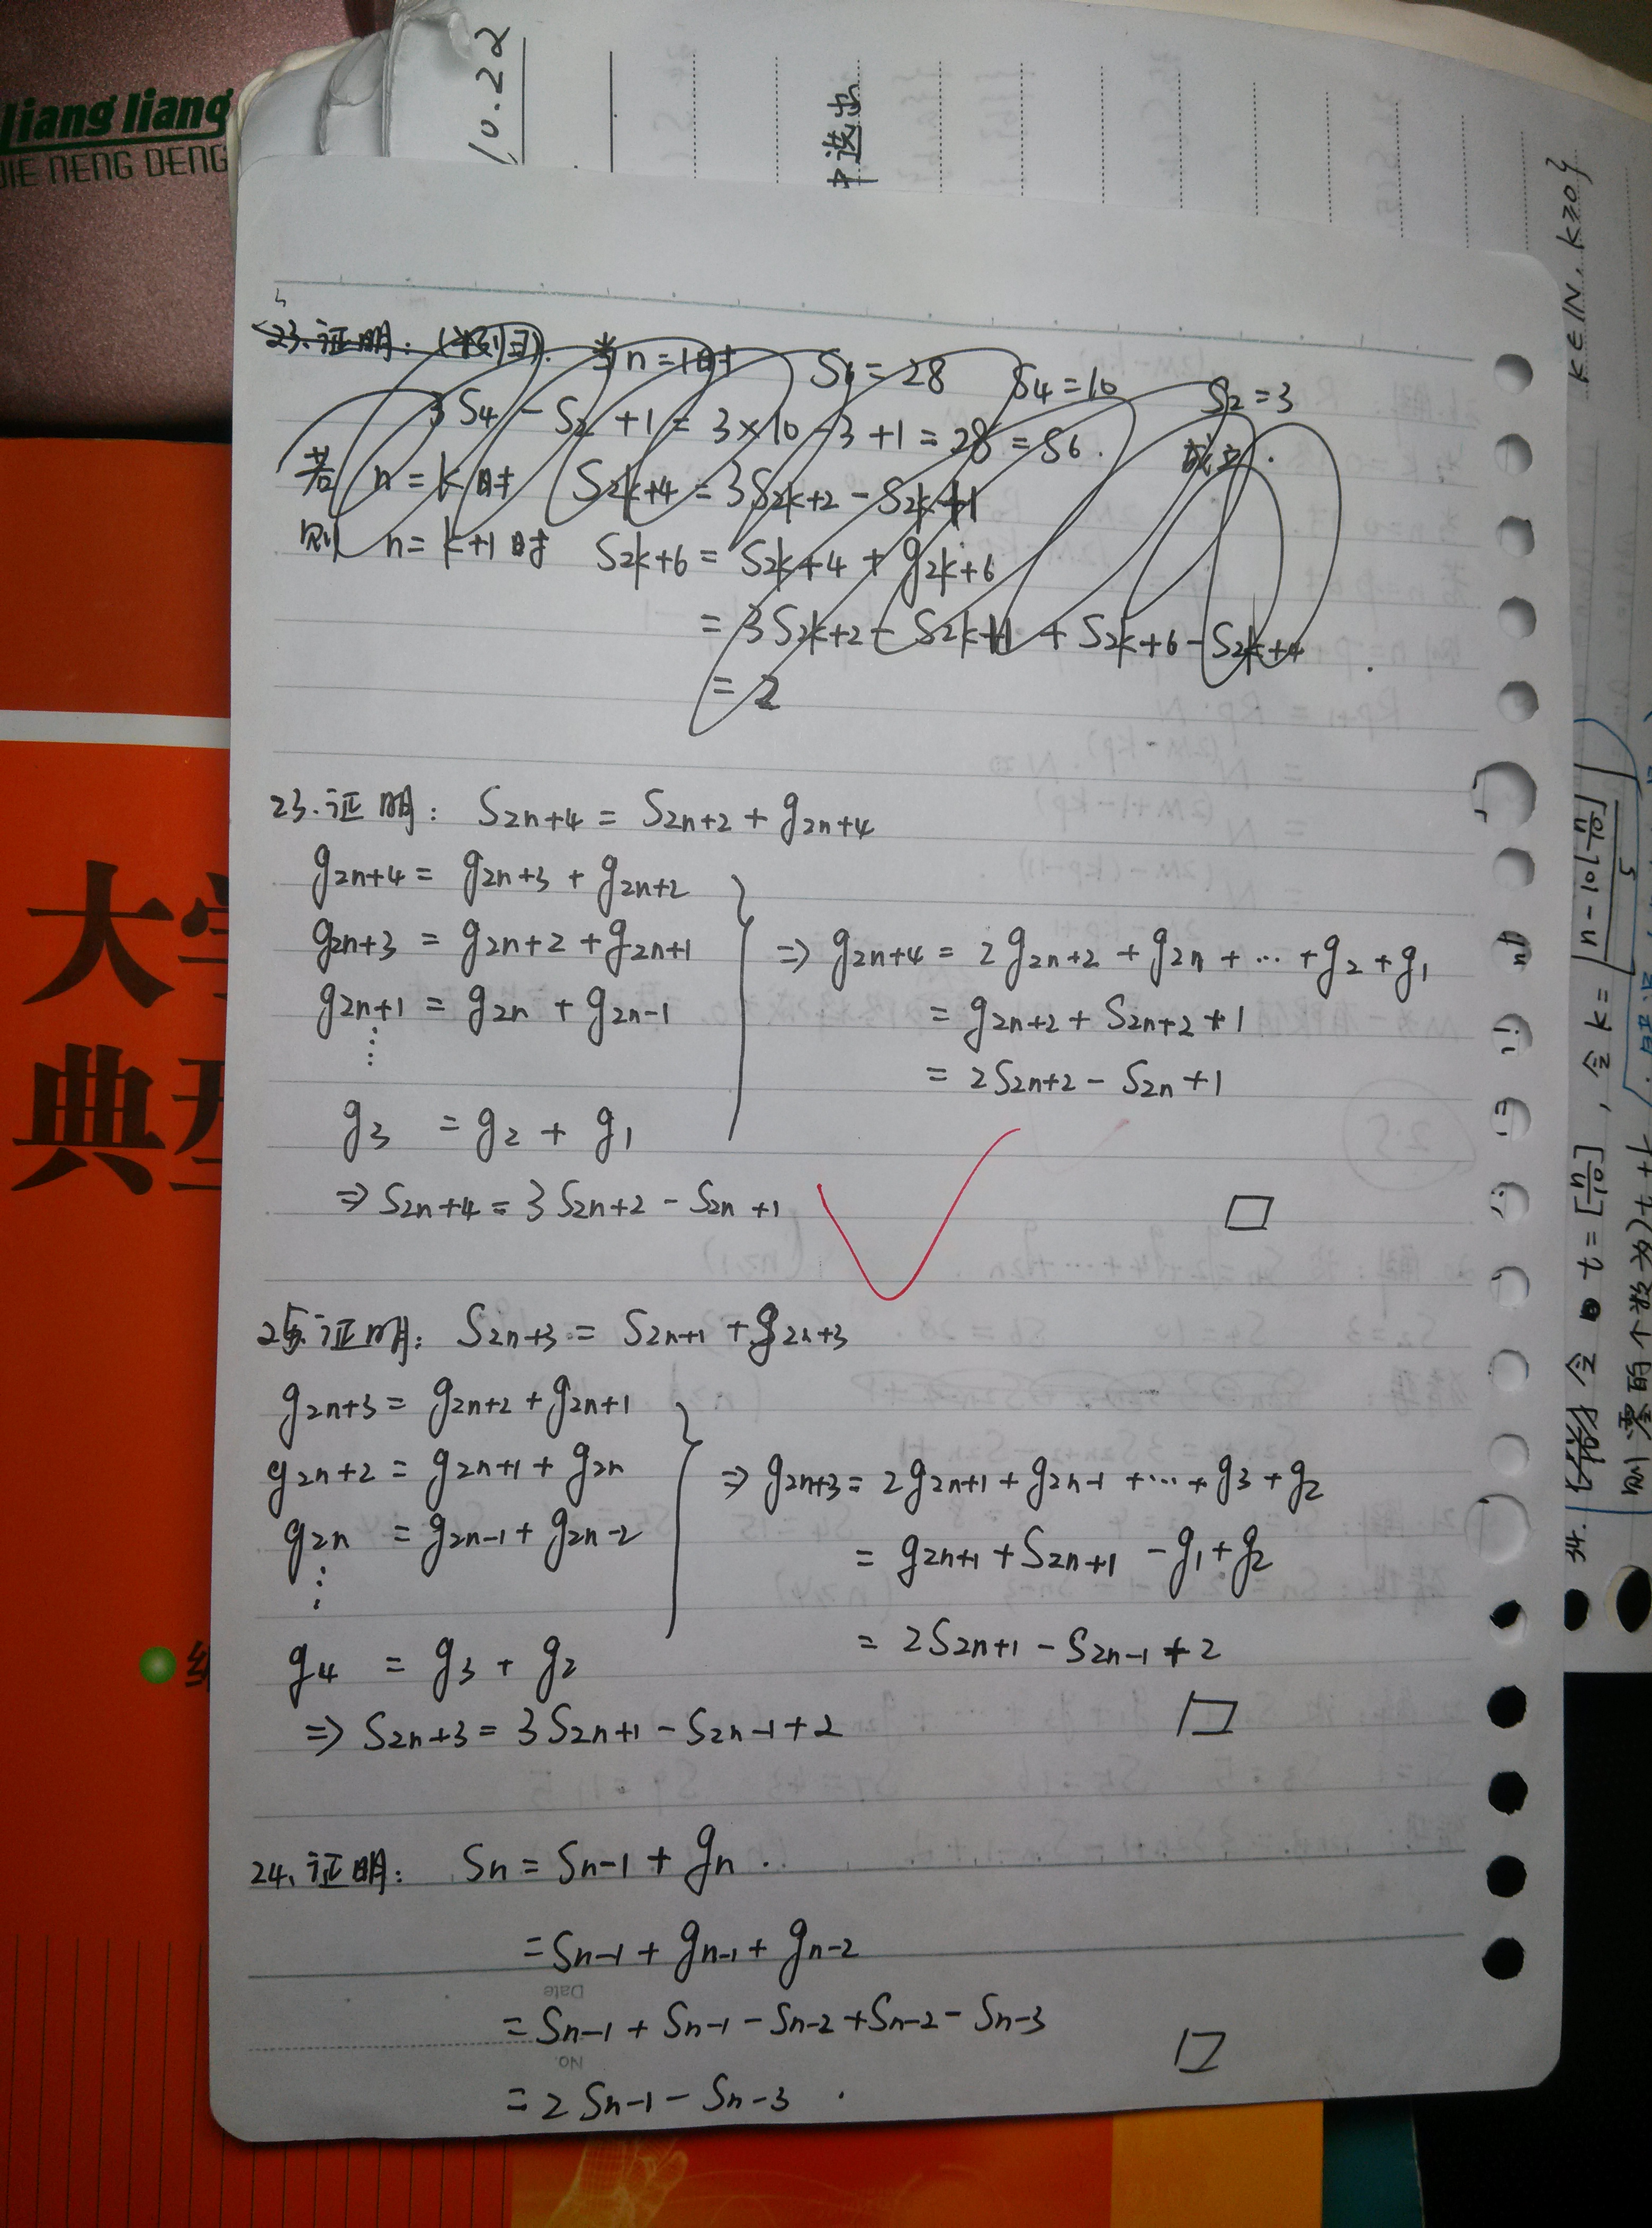 liang liang
JIE NENG DENG
10.22
中选出
23.证明: 当n=1时 S6=28 S4=10 S2=3
3S4-S2+1=3×10-3+1=28=S6. 成立.
若 n=k时 S2k+4=3S2k+2-S2k+1
则 n=k+1时 S2k+6=S2k+4+g2k+6
=3S2k+2-S2k+1+S2k+6-S2k+4
=2
23.证明: S2n+4=S2n+2+g2n+4
g2n+4=g2n+3+g2n+2
g2n+3=g2n+2+g2n+1
⇒ g2n+4=2g2n+2+g2n+…+g2+g1
g2n+1=g2n+g2n-1
=g2n+2+S2n+2+1
⋮
=2S2n+2-S2n+1
g3=g2+g1
⇒S2n+4=3S2n+2-S2n+1 □
25.证明: S2n+3=S2n+1+g2n+3
g2n+3=g2n+2+g2n+1
g2n+2=g2n+1+g2n
⇒ g2n+3=2g2n+1+g2n-1+…+g3+g2
g2n=g2n-1+g2n-2
=g2n+1+S2n+1-g1+g2
⋮
=2S2n+1-S2n-1+2
g4=g3+g2
⇒S2n+3=3S2n+1-S2n-1+2 □
24.证明: Sn=Sn-1+gn.
=Sn-1+gn-1+gn-2
Date
=Sn-1+Sn-1-Sn-2+Sn-2-Sn-3 □
No.
=2Sn-1-Sn-3.
大学
典型
k∈N,k≥0}
34.